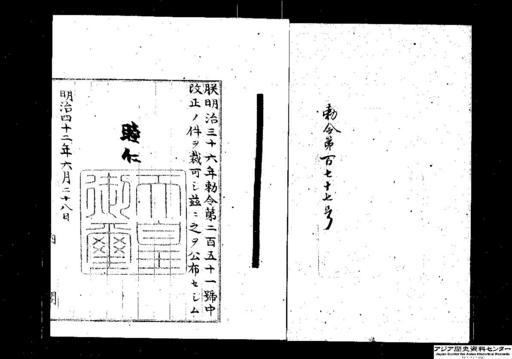 勅令第百七十七号
朕明治三十六年勅令第二百五十一號中
改正ノ件ヲ裁可シ茲ニ之ヲ公布セシム
睦仁
天皇
御璽
明治四十二年六月二十八日
内閣
アジア歴史資料センター
Japan Center for Asian Historical Records